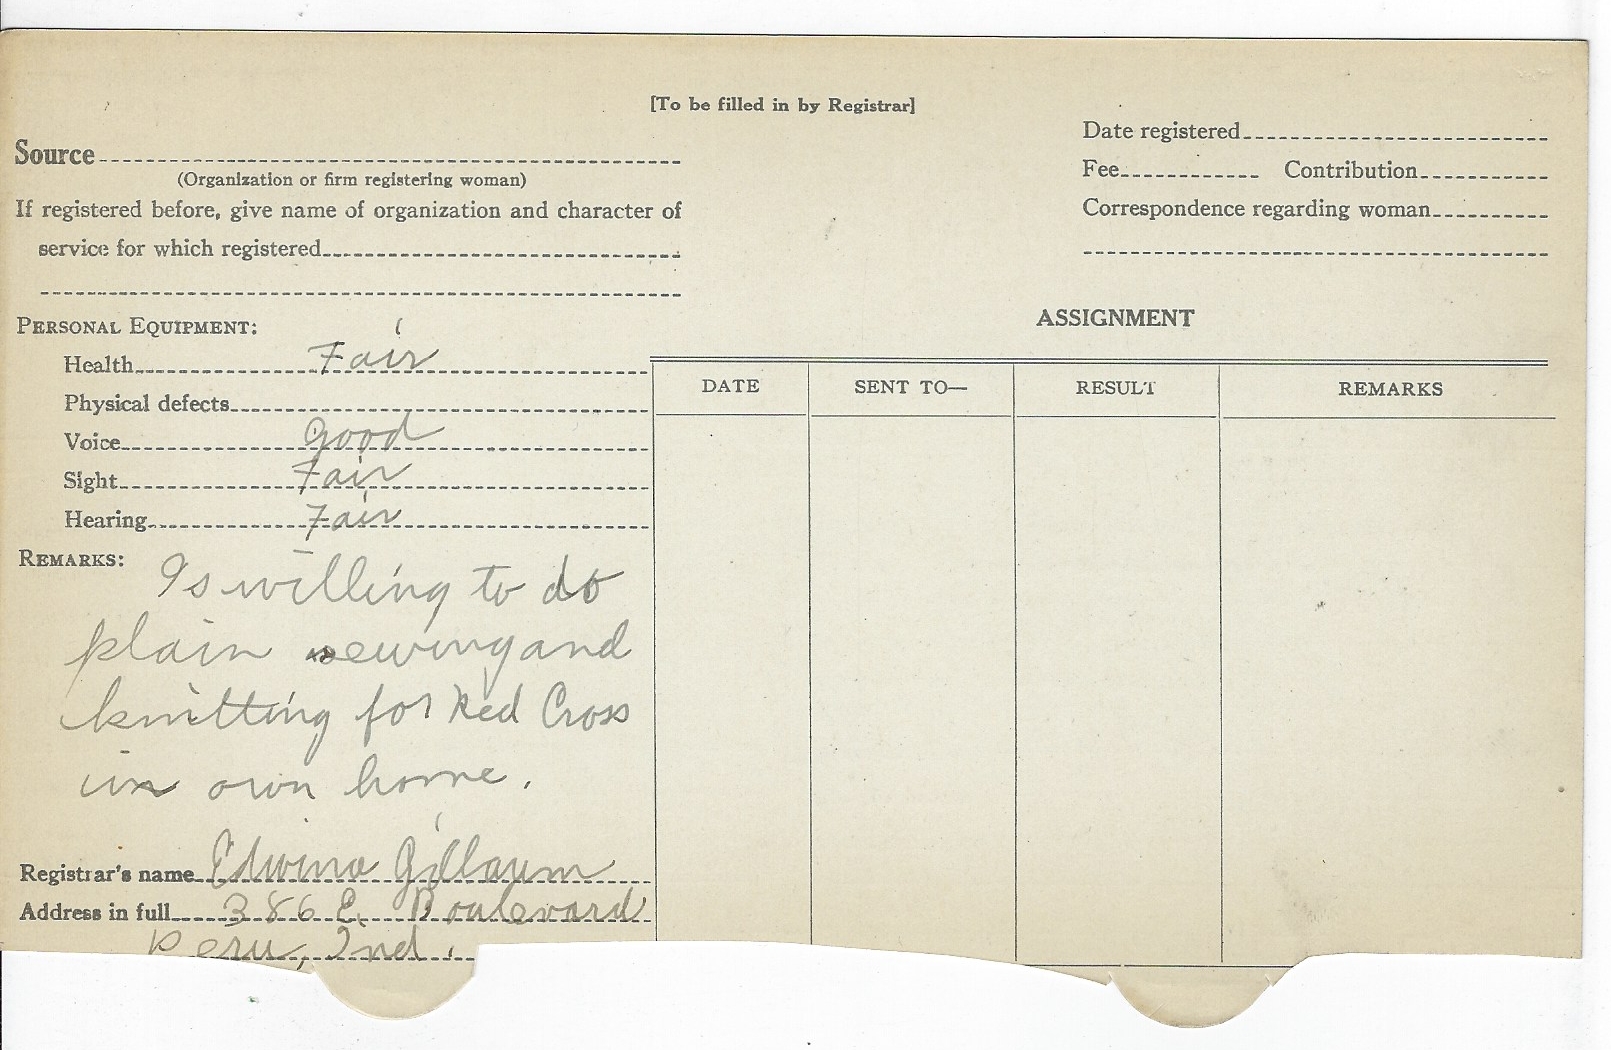 [To be filled in by Registrar]
Date registered
Source
(Organization or firm registering woman)
Fee Contribution
If registered before, give name of organization and character of
Correspondence regarding woman
service for which registered
PERSONAL EQUIPMENT:
ASSIGNMENT
Health Fair
DATE SENT TO— RESULT REMARKS
Physical defects
Voice good
Sight Fair
Hearing Fair
REMARKS: Is willing to do
plain sewing and
knitting for Red Cross
in own home.
Registrar's name Edwina Gillaum
Address in full 386 E. Boulevard
Peru, Ind.